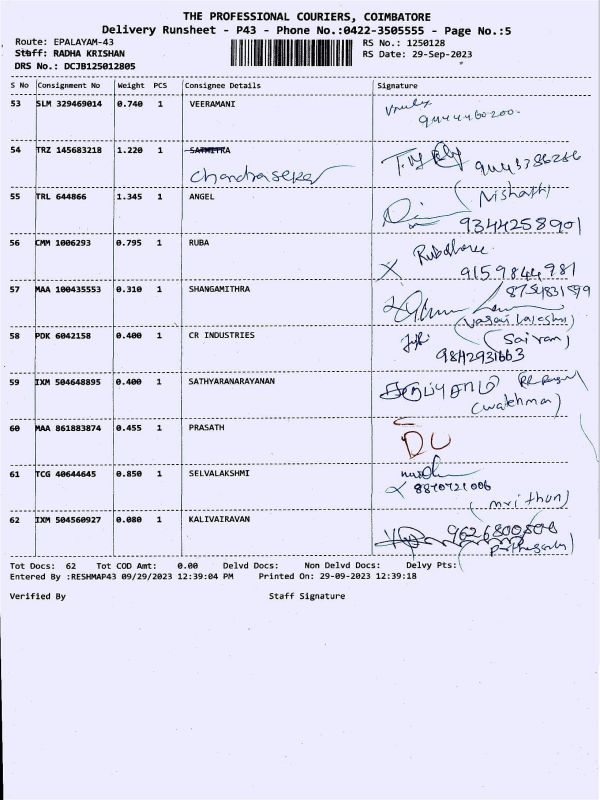 THE PROFESSIONAL COURIERS, COIMBATORE
Delivery Runsheet - P43 - Phone No.:0422-3505555 - Page No.:5
Route: EPALAYAM-43 RS No.: 1250128
Staff: RADHA KRISHAN RS Date: 29-Sep-2023
DRS No.: DCJB125012805
S No Consignment No Weight PCS Consignee Details Signature
53 SLM 329469014 0.740 1 VEERAMANI
9444460200
54 TRZ 145683218 1.220 1
Chandraseker
55 TRL 644866 1.345 1 ANGEL
9344258901
56 CMM 1006293 0.795 1 RUBA
9159844981
57 MAA 100435553 0.310 1 SHANGAMITHRA
58 PDK 6042158 0.400 1 CR INDUSTRIES
(Sairam)
59 IXM 504648895 0.400 1 SATHYARANARAYANAN
60 MAA 861883874 0.455 1 PRASATH
61 TCG 40644645 0.850 1 SELVALAKSHMI
8870721006
(mrithun)
62 IXM 504560927 0.080 1 KALIVAIRAVAN
Tot Docs: 62 Tot COD Amt: 0.00 Delvd Docs: Non Delvd Docs: Delvy Pts:
Entered By :RESHMAP43 09/29/2023 12:39:04 PM Printed On: 29-09-2023 12:39:18
Verified By Staff Signature